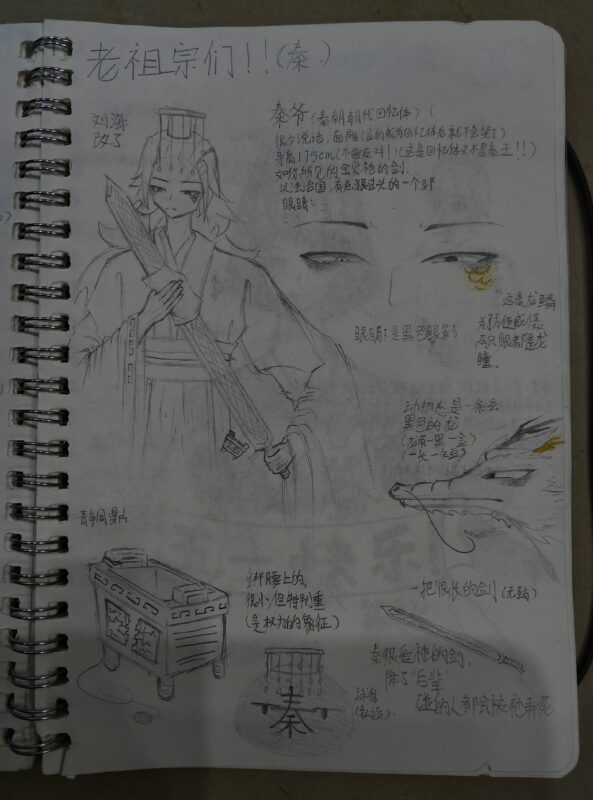 老祖宗们!!(秦.)
刘海
改了
秦爷(秦朝朝代回忆体)(
很少说话,面瘫(真的成为回忆体后就不会笑了)
身高175cm(不要反对!)(这是回忆体又不是秦王!!)
如你所见的宝贝祂的剑.
以法治国,有点狠过头的一个
眼睛:
这是龙鳞
眼睛是黑色眼影
两只眼都是龙
瞳.
动物态是一条玄
黑色的龙
(龙角一黑一金)
(一长一短)
青铜鼎
绑腰上的,
很小,但特别重
(是权力的象征)
一把很长的剑(无鞘)
秦很爱祂的剑.
除了"后辈"
碰的人都会被祂弄死
秦
(私设)